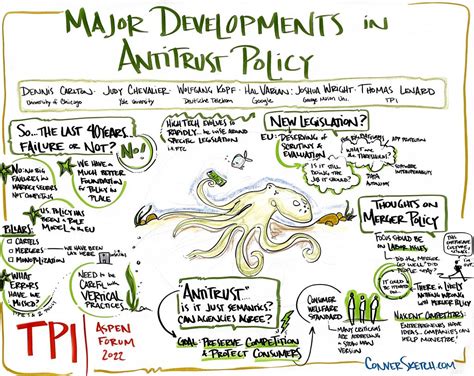 MAJOR DEVELOPMENTS IN
ANTITRUST POLICY
DENNIS CARLTON · JUDY CHEVALIER · WOLFGANG KOPF · HAL VARIAN · JOSHUA WRIGHT · THOMAS LENARD
University of Chicago
Yale University
Deutsche Telekom
Google
George Mason Univ.
TPI
SO... THE LAST 40 YEARS.
FAILURE OR NOT?
NO!
NO: NO BIG
FAILURES IN
WE HAVE A
MUCH BETTER
FOUNDATION
FOR POLICY IN
PLACE
U.S. POLICY HAS
BEEN A ROLE
MODEL to the EU
PILLARS:
CARTELS
MERGERS
MONOPOLIZATION
WE HAVE BEEN
LAX HERE
WHAT
ERRORS
HAVE WE
MISSED?
TYPE 1 & 2
NEED to be
CAREFUL with
VERTICAL
PRACTICES
HIGH TECH EVOLVES so
RAPIDLY.
SPECIFIC LEGISLATION
NEW LEGISLATION?
EU: DESERVING of
SCRUTINY &
EVALUATION
IS IT STILL
DOING THE
JOB IT SHOULD?
WHAT ARE
THE
SOFTWARE
INTEROPERABILITY
DATA
THOUGHTS on
MERGER POLICY
FOCUS SHOULD BE
ON
DID THE MERGER
GO WELL? DID
PEOPLE
IT COULD
BE
THERE IS LIKELY
NOTHING WRONG
WITH MERGER RULES
NASCENT COMPETITORS:
ENTREPRENEURS HAVE
IDEAS. COMPANIES CAN
HELP MAKE IT HAPPEN
"ANTITRUST"
IS IT JUST SEMANTICS?
CAN AGENCIES AGREE?
GOAL: PRESERVE COMPETITION
& PROTECT CONSUMERS
CONSUMER
WELFARE
STANDARD
MANY CRITICISMS
ARE ADDRESSING
A STRAW MAN
VERSION
TPI
ASPEN
FORUM
2022
CONVERSKETCH.COM